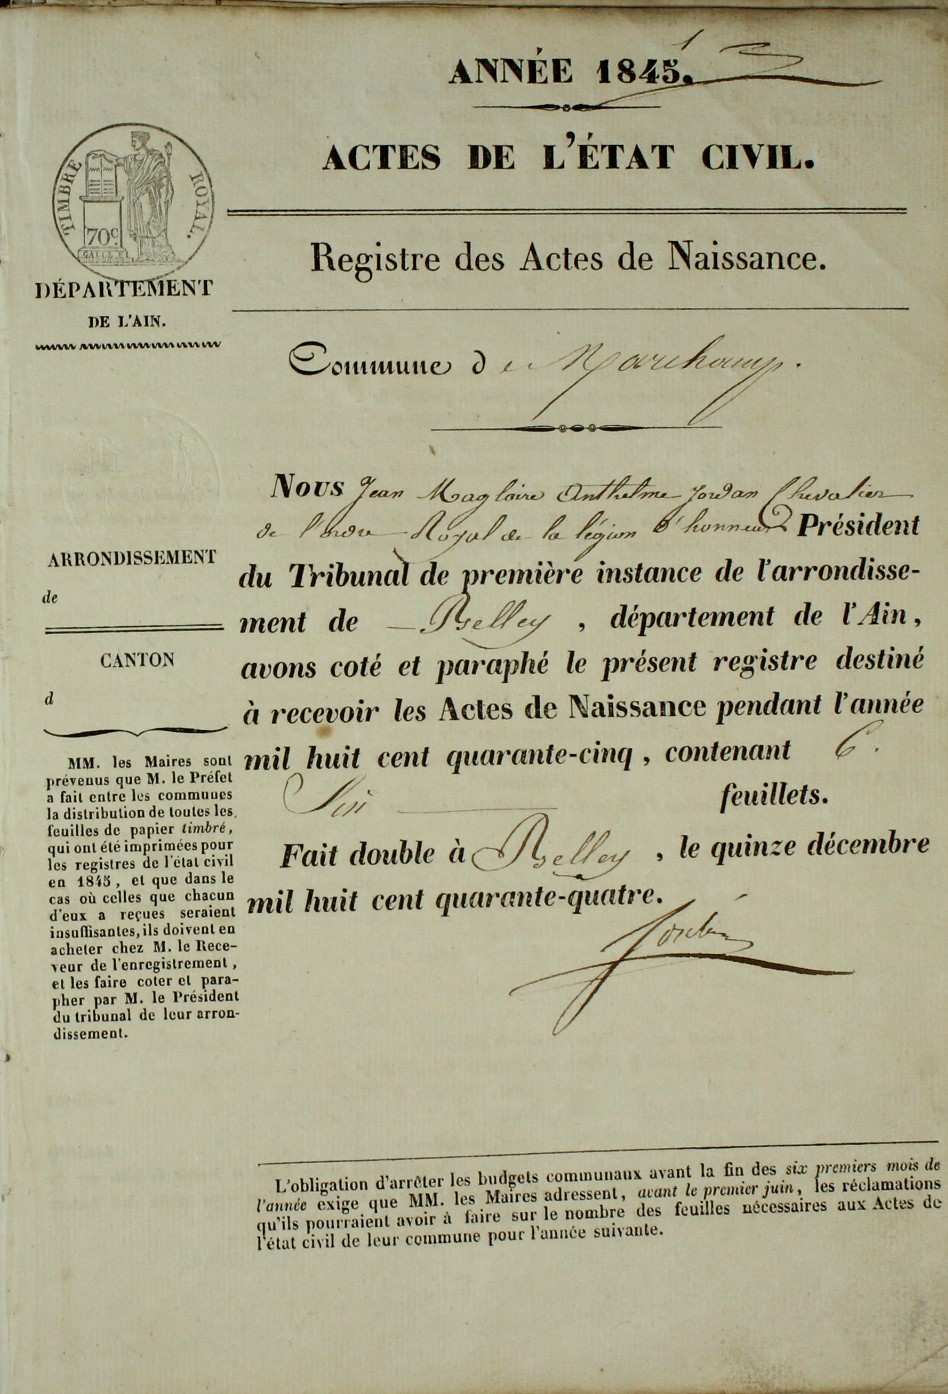 ANNÉE 1845.
ACTES DE L'ÉTAT CIVIL.
TIMBRE ROYAL.
70c
Registre des Actes de Naissance.
DÉPARTEMENT
DE L'AIN.
Commune de Marchamp.
Nous Jean Magloire Anthelme Jordan Chevalier
de l'ordre Royal de la légion d'honneur Président
du Tribunal de première instance de l'arrondisse-
ment de Belley, département de l'Ain,
avons coté et paraphé le présent registre destiné
à recevoir les Actes de Naissance pendant l'année
mil huit cent quarante-cinq, contenant 6.
Six feuillets.
Fait double à Belley, le quinze décembre
mil huit cent quarante-quatre.
ARRONDISSEMENT
de
CANTON
d
MM. les Maires sont
prévenus que M. le Préfet
a fait entre les communes
la distribution de toutes les
feuilles de papier timbré,
qui ont été imprimées pour
les registres de l'état civil
en 1845, et que dans le
cas où celles que chacun
d'eux a reçues seraient
insuffisantes, ils doivent en
acheter chez M. le Rece-
veur de l'enregistrement,
et les faire coter et para-
pher par M. le Président
du tribunal de leur arron-
dissement.
L'obligation d'arrêter les budgets communaux avant la fin des six premiers mois de
l'année exige que MM. les Maires adressent, avant le premier juin, les réclamations
qu'ils pourraient avoir à faire sur le nombre des feuilles nécessaires aux Actes de
l'état civil de leur commune pour l'année suivante.